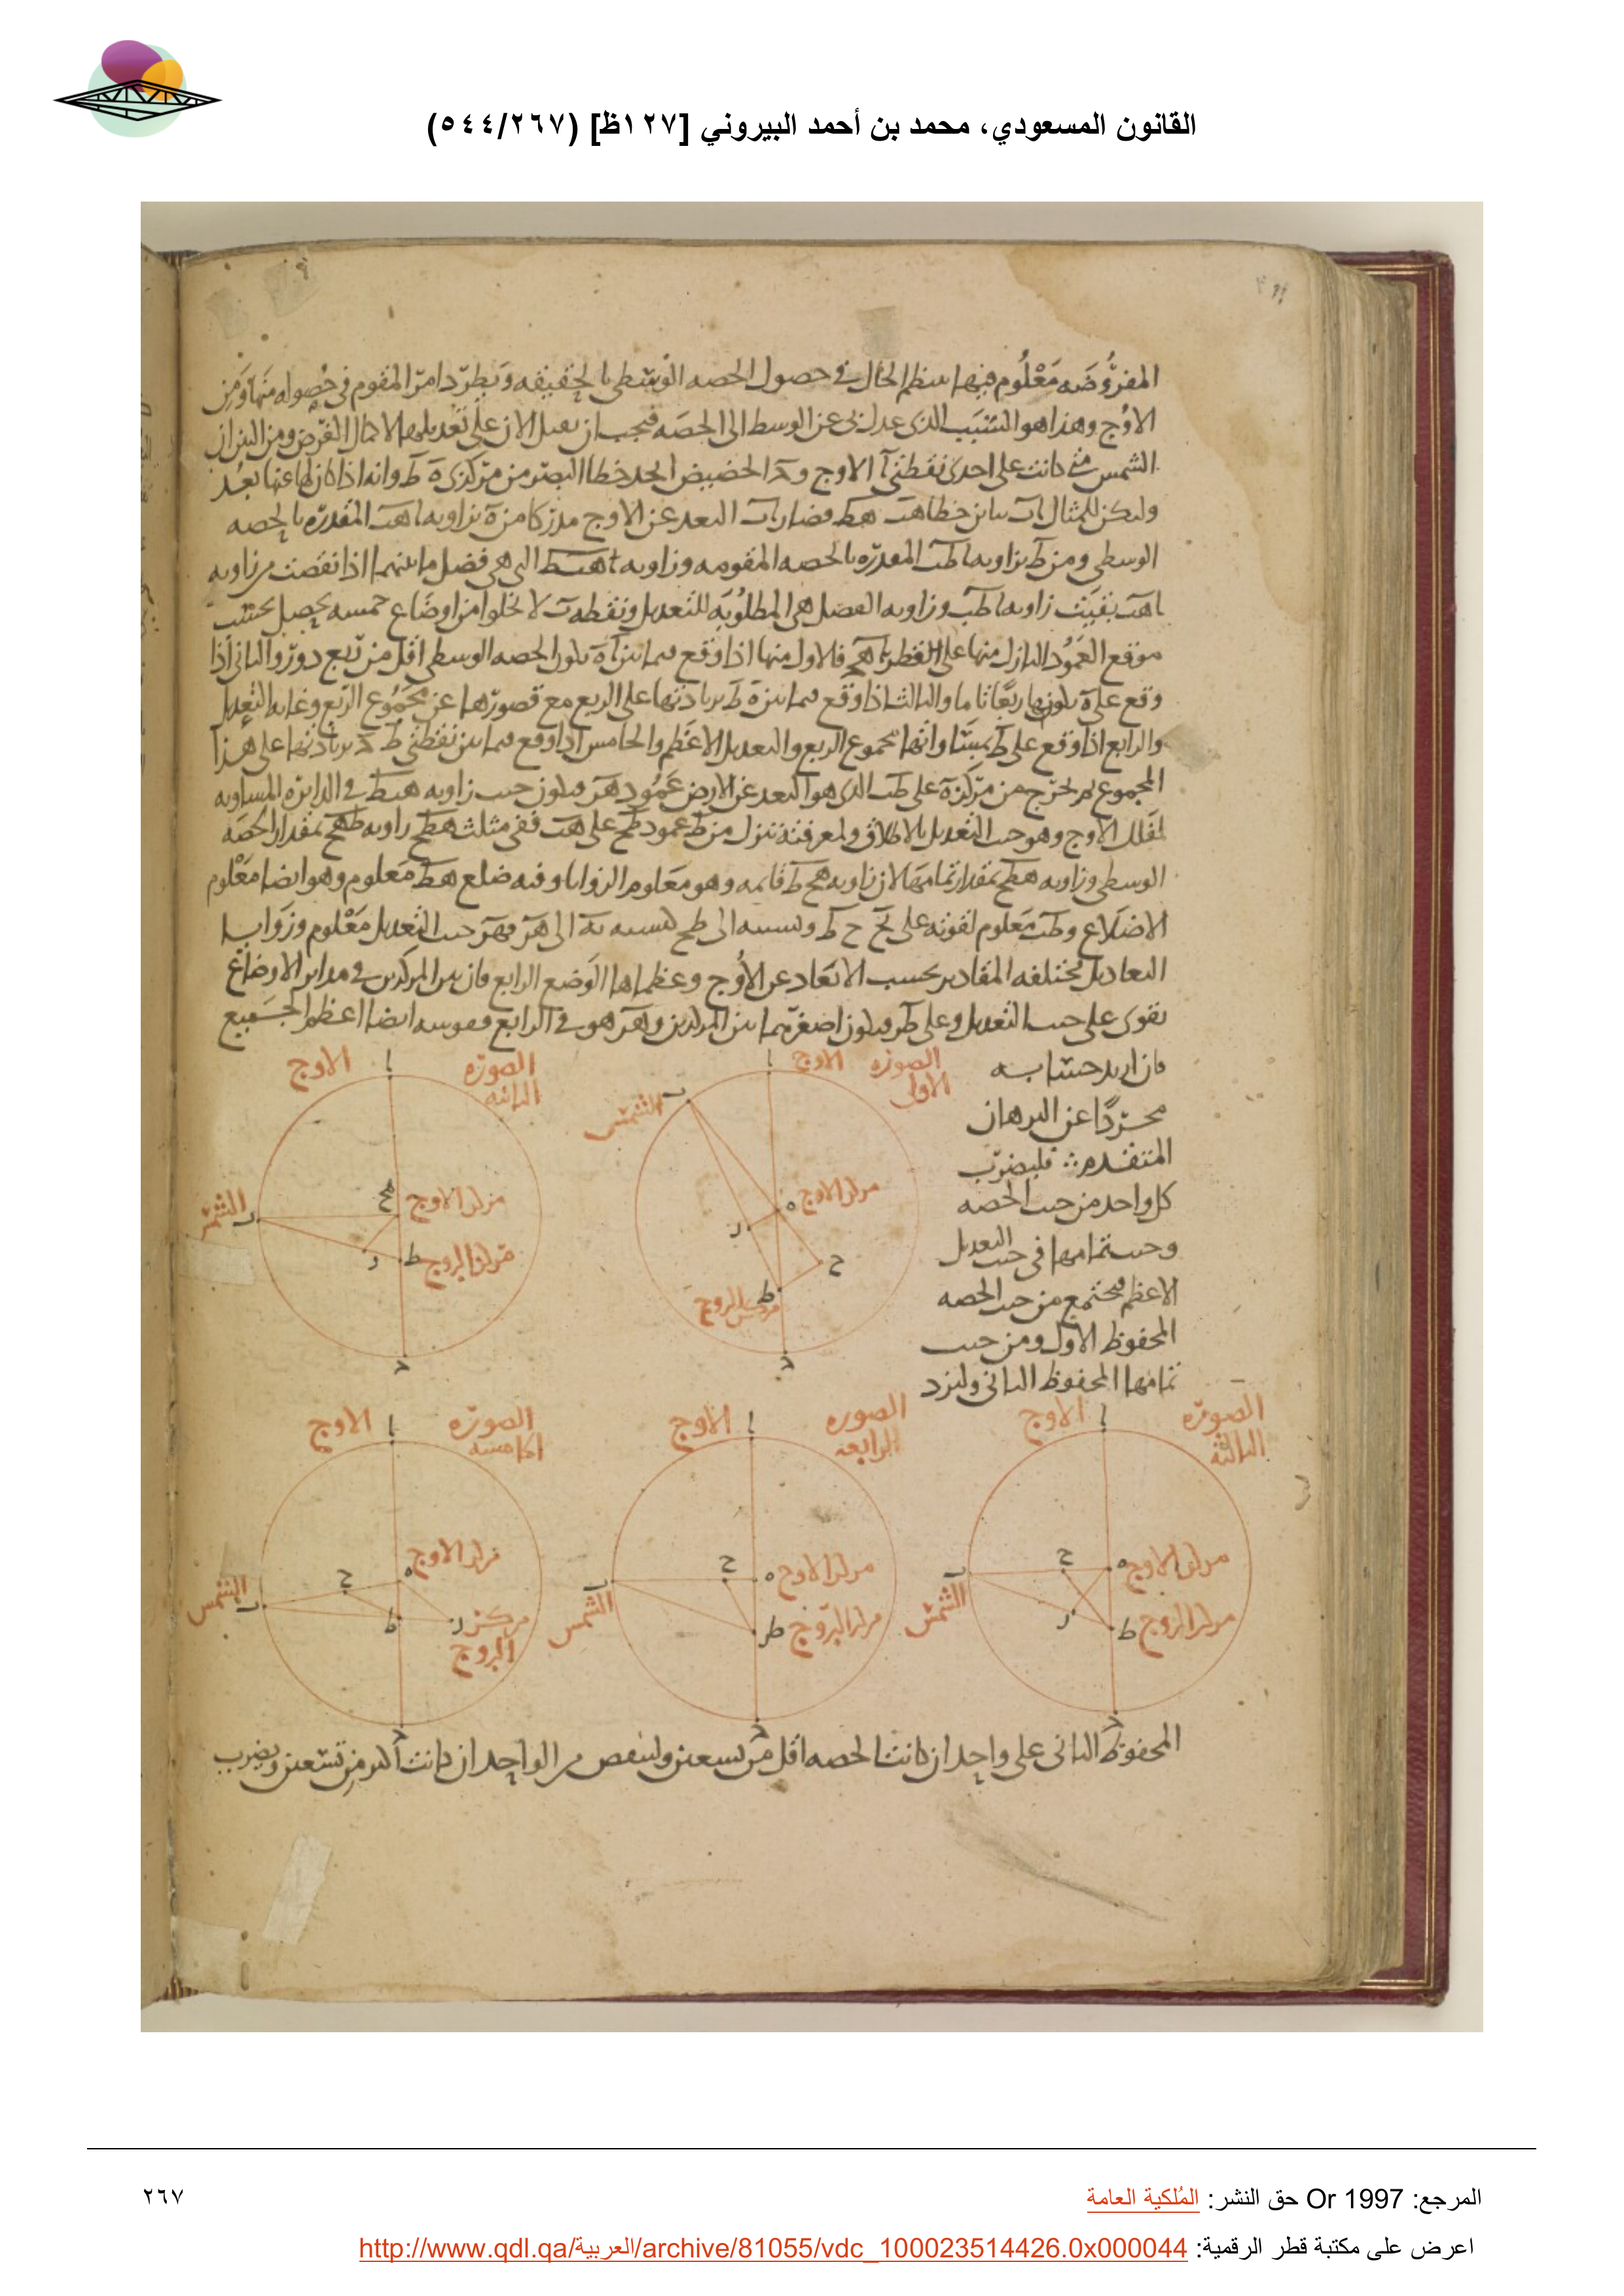 القانون المسعودي، محمد بن أحمد البيروني [١٢٧ظ] (٥٤٤/٢٦٧)
المفروضه معلوم فيها سظم الحال في حصول الحصه الوسطى بالحقيقه ويطرد امر المقوم في حصوله منها ومن
الاوج وهذا هو السبب الذى عدل بى عن الوسط الى الحصه فيجب ان نعمل الان على تعديلها الامثال الفرض ومن البين ان
الشمس متى كانت على احدى نقطتى آ الاوج و د الحضيض اتحد خطا البصر من مركزى ه ط وانه اذا كان لها عنها بعد
وليكن للمثال ا ب تباين خطا هب طب فصار ا ب البعد عن الاوج مدركا من ه بزاويه اهب المقدره بالحصه
الوسطى ومن ط بزاويه اطب المقدره بالحصه المقومه وزاويه هبط التى هى فضل ما بينهما اذا نقصت من زاويه
اهب بقيت زاويه اطب وزاويه الفضل هى المطلوبه للتعديل ونقطه ب لا تخلوا من اوضاع خمسه يحصل بحسب
موقع العمود النازل منها على القطر فالاول منها اذا وقع فيما بين ا ه بكون الحصه الوسطى اقل من ربع دور والثانى اذا
وقع على ه بكونها ربعا تاما والثالث اذا وقع فيما بين ه ط بزيادتها على الربع مع قصورها عن مجموع الربع وغايه التعديل
والرابع اذا وقع على ط بمساواتها مجموع الربع والتعديل الاعظم والخامس اذا وقع فيما بين نقطتى ط د بزيادتها على هذا
المجموع ثم نخرج من مركز ه على طب الذى هو البعد عن الارض عمود هر فيكون جيب زاويه هبط فى الدايره المساويه
لفلك الاوج وهو جيب التعديل بالاطلاق ولمعرفته ننزل من ط عمود طح على هب ففى مثلث هطح زاويه طهح بمقدار الحصه
الوسطى وزاويه هطح بمقدار تمامها لان زاويه هحط قايمه وهو معلوم الزوايا وفيه ضلع هط معلوم وهو ايضا معلوم
الاضلاع وطب معلوم لقوته على بح ح ط ونسبته الى طح كنسبه به الى هر فهر جيب التعديل معلوم وزوايا
التعاديل مختلفه المقادير بحسب الابعاد عن الاوج وعظماها الوضع الرابع فان بين المركزين فى ساير الاوضاع
يقوى على جيب التعديل وعلى طر فيكون اصغر مما بين المركزين وهر هو فى الرابع وقوسه ايضا اعظم الجميع
فان اريد حسابه
مجردا عن البرهان
المتقدم فليضرب
كل واحد من جيب الحصه
وجيب تمامها فى جيب التعديل
الاعظم فيجتمع من جيب الحصه
المحفوظ الاول ومن جيب
تمامها المحفوظ الثانى وليزد
الصوره الاولى
الاوج
ا
الشمس
ب
مركز الاوج
ه
ر
ح
ط
مركز البروج
د
الصوره الثانيه
الاوج
ا
الشمس
ب
هح
مركز الاوج
ر
ط
مركز البروج
د
الصوره الثالثه
الاوج
ا
ح
ه
مركز الاوج
ب
الشمس
ر
ط
مركز البروج
د
الصوره الرابعه
الاوج
ا
ح
ه
مركز الاوج
ب
الشمس
ط
مركز البروج
د
الصوره الخامسه
الاوج
ا
مركز الاوج
ه
ح
الشمس
ب
ط
ر
مركز البروج
د
المحفوظ الثانى على واحد ان كانت الحصه اقل من تسعين ولينقص من الواحد ان كانت اكثر من تسعين ويضرب
المرجع: Or 1997 حق النشر: المُلكية العامة
٢٦٧
اعرض على مكتبة قطر الرقمية: http://www.qdl.qa/العربية/archive/81055/vdc_100023514426.0x000044